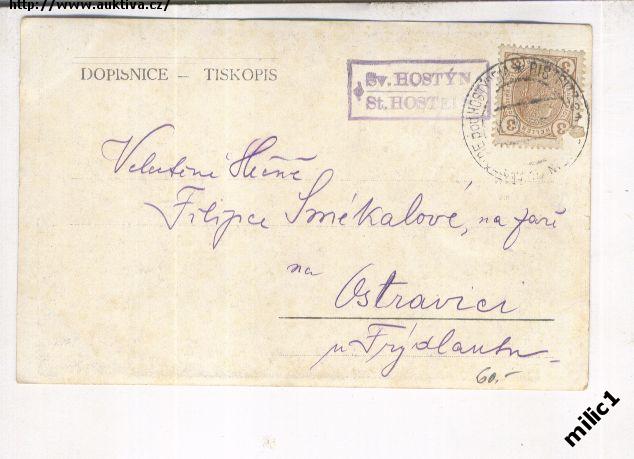 http://www.auktiva.cz/
DOPISNICE – TISKOPIS
Sv. HOSTÝN
St. HOSTEIN
3 3
Velectěné Slečně
Filipce Smékalové, na faře
na
Ostravici
u Frýdlantu
60.-
milic1